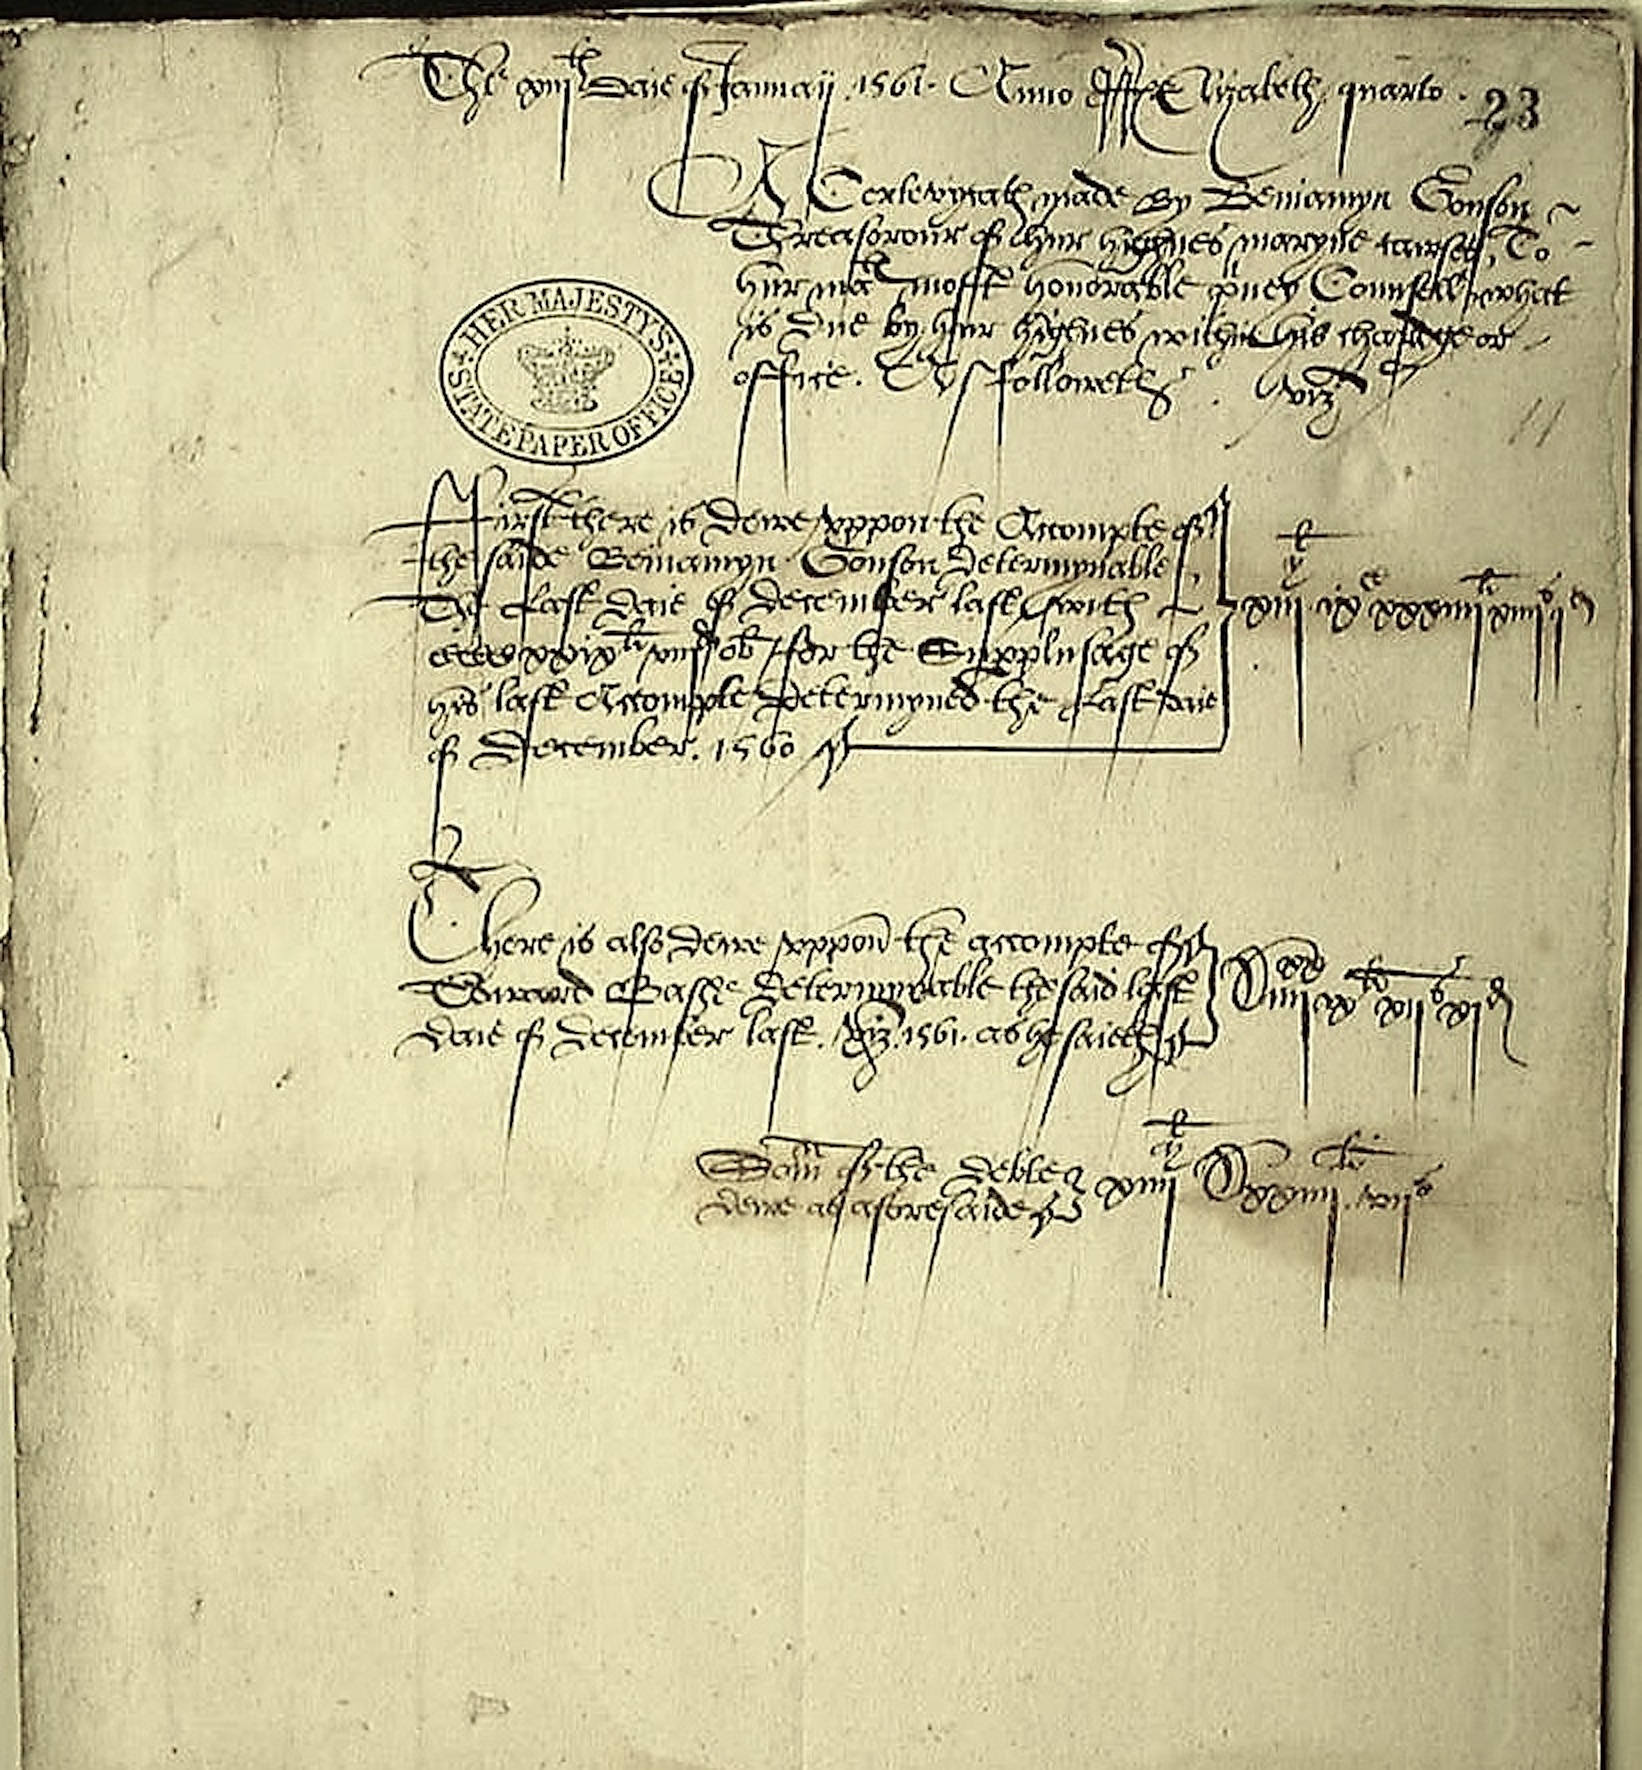 The xiiijth Daie of Januarij .1561. Anno RRe Elizabeth quarto .
23
A Certeficath made By Beniamyn Gonson
Threasorour of hur highnes maryne cawses, To
hur matie moste honorable privey Counsell, what
is Due by hur highnes within his chardge or
office. As followeth. vizt
HER MAJESTY'S STATE PAPER OFFICE
First there is dewe vppon the Accompte of
the saide Beniamyn Gonson determynable
the Last Daie of December last, with
xxixli viijd ob for the Supplusage of
his last Accompte Determyned the Last daie
of December. 1560
xiiij ixc xxxiiijli xiiijs ijd
There is also dewe vppon the accompte of
Edward Bashe determynable the said last
daie of December last. viz. 1561. as he saieth
xijs xjd
Som of the debte
dewe as aforesaide
xiiij vijs